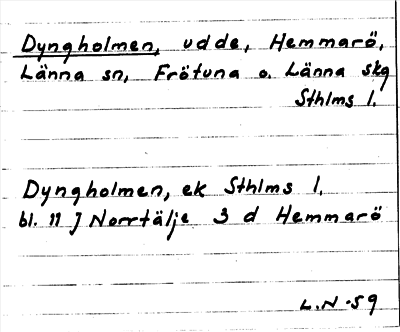 Dyngholmen, udde, Hemmarö,
Länna sn, Frötuna o. Länna skg
Sthlms l.
Dyngholmen, ek Sthlms l.
bl. 11 J Norrtälje 3 d Hemmarö
L.N -59